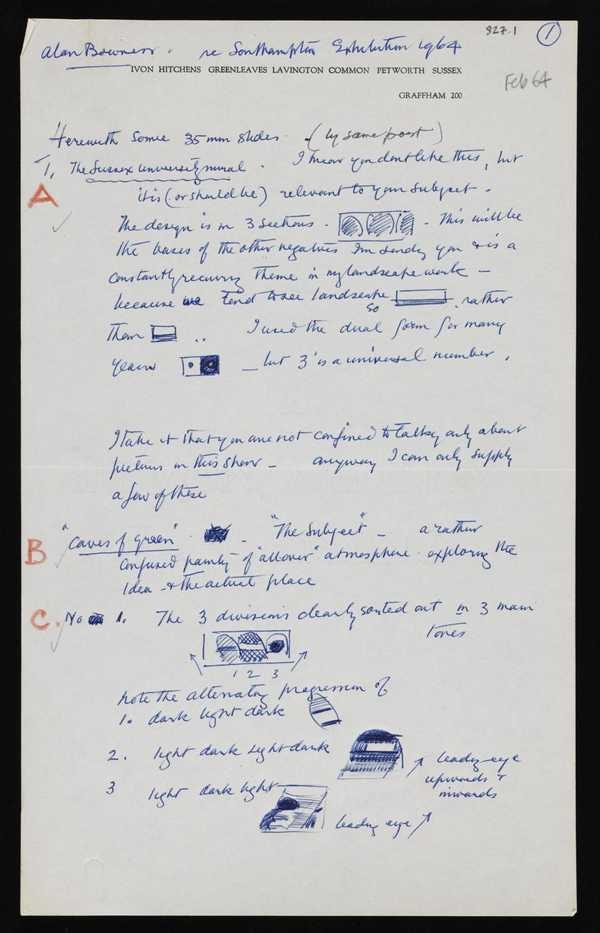 827.1
1
Alan Bowness. re Southampton Exhibition 1964
IVON HITCHENS GREENLEAVES LAVINGTON COMMON PETWORTH SUSSEX
Feb 64
GRAFFHAM 200
Herewith some 35mm slides - (by same post)
1, The Sussex University mural. I know you dont like this, but
A it is (or should be) relevant to your subject.
The design is in 3 sections - . This will be
the bases of the other negatives I'm sending you & is a
constantly recurring theme in my landscape work —
because we tend to see landscape so . rather
than .. I used the dual form for many
years — but 3 is a universal number.
I take it that you are not confined to talking only about
pictures in this show — anyway I can only supply
a few of these
B "Caves of green" - "The Subject" - a rather
confused painting of "allover" atmosphere exploring the
idea - & the actual place
C. No 1. The 3 divisions clearly sorted out in 3 main
tones
1 2 3
note the alternating progression of
1. dark light dark
2. light dark light dark leading eye
upwards &
inwards
3 light dark light
leading eye